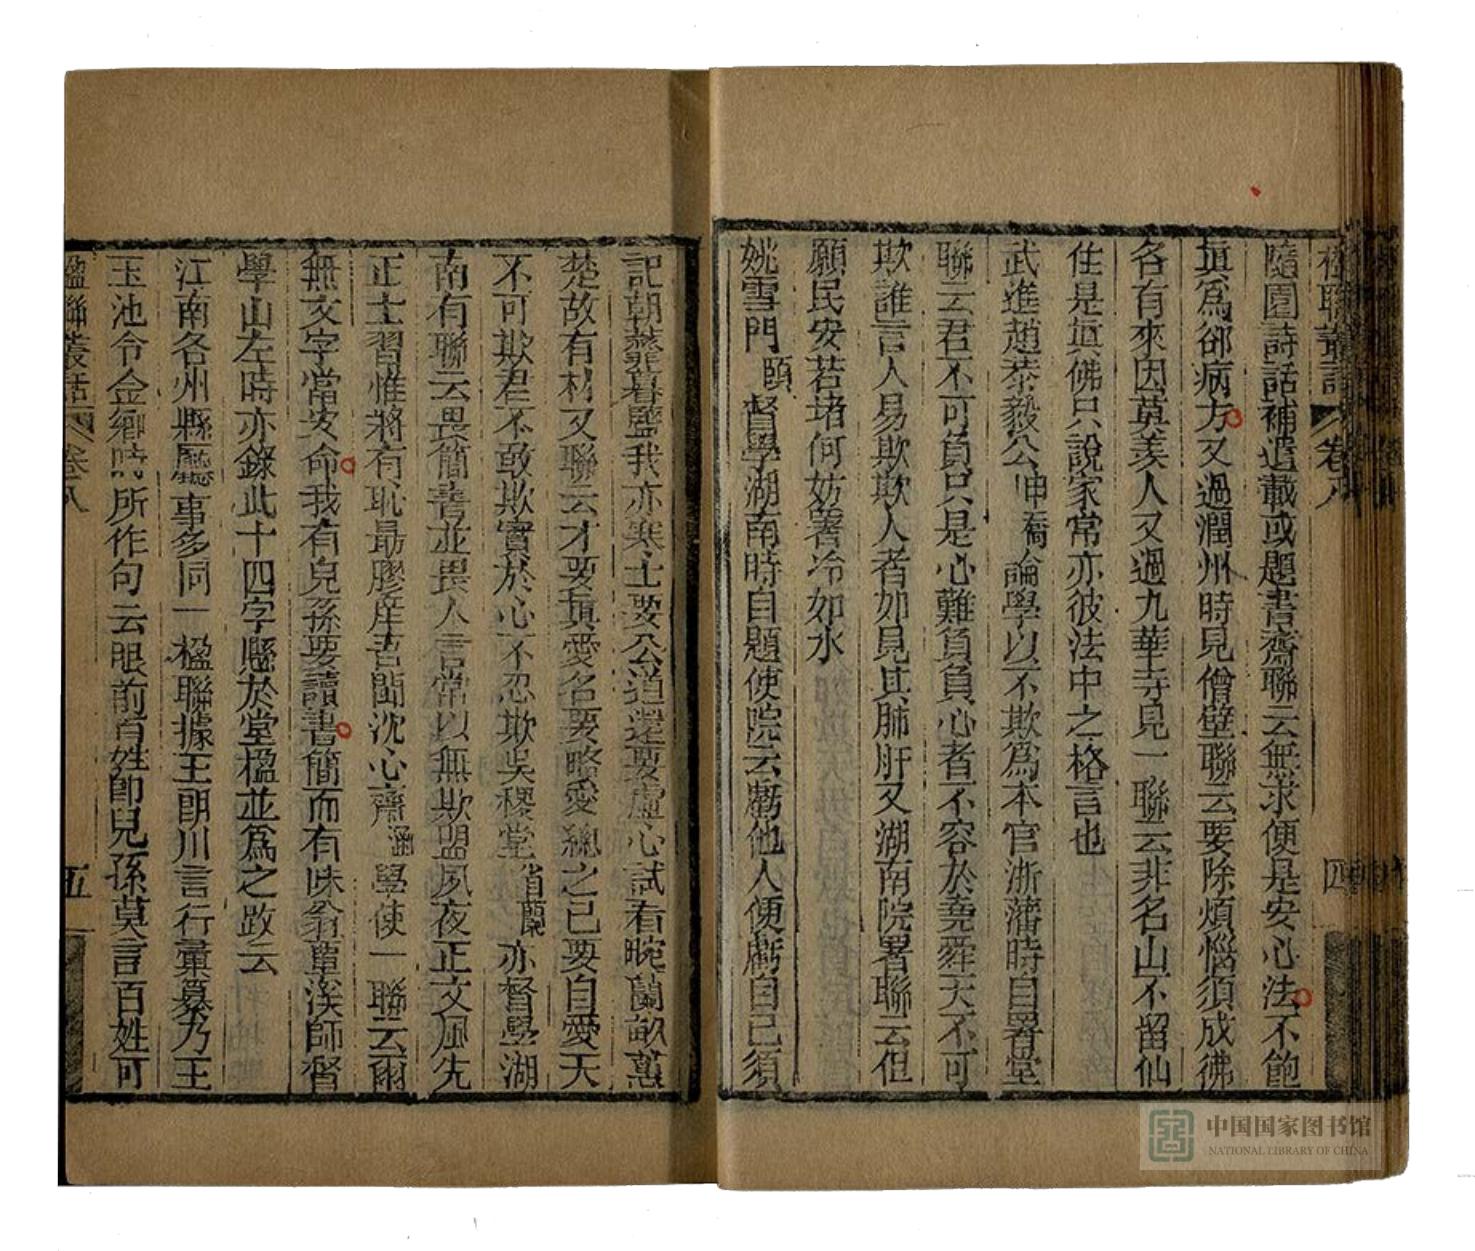 楹聯叢話 卷八 四
隨園詩話補遺載或題書齋聯云無求便是安心法不飽
眞爲卻病方又過潤州時見僧壁聯云要除煩惱須成佛
各有來因莫羨人又過九華寺見一聯云非名山不留仙
住是眞佛只說家常亦彼法中之格言也
武進趙恭毅公申喬論學以不欺爲本官浙藩時自署堂
聯云君不可負只是心難負負心者不容於堯舜天不可
欺誰言人易欺欺人者如見其肺肝又湖南院署聯云但
願民安若堵何妨署冷如水
姚雪門頤督學湖南時自題使院云虧他人便虧自己須
記朝虀暮鹽我亦寒士要公道還要虛心試看畹蘭畝蕙
楚故有材又聯云才要眞愛名要略愛總之己要自愛天
不可欺君不敢欺實於心不忍欺吳稷堂省蘭亦督學湖
南有聯云畏簡書並畏人言常以無欺盟夙夜正文風先
正士習惟將有恥最膠庠吾閩沈心齋涵學使一聯云爾
無文字當安命我有兒孫要讀書簡而有味翁覃溪師督
學山左時亦錄此十四字懸於堂楹並爲之跋云
江南各州縣廳事多同一楹聯據王朗川言行彙纂乃王
玉池令金鄉時所作句云眼前百姓卽兒孫莫言百姓可
楹聯叢話 卷八 五
中国国家图书馆
NATIONAL LIBRARY OF CHINA